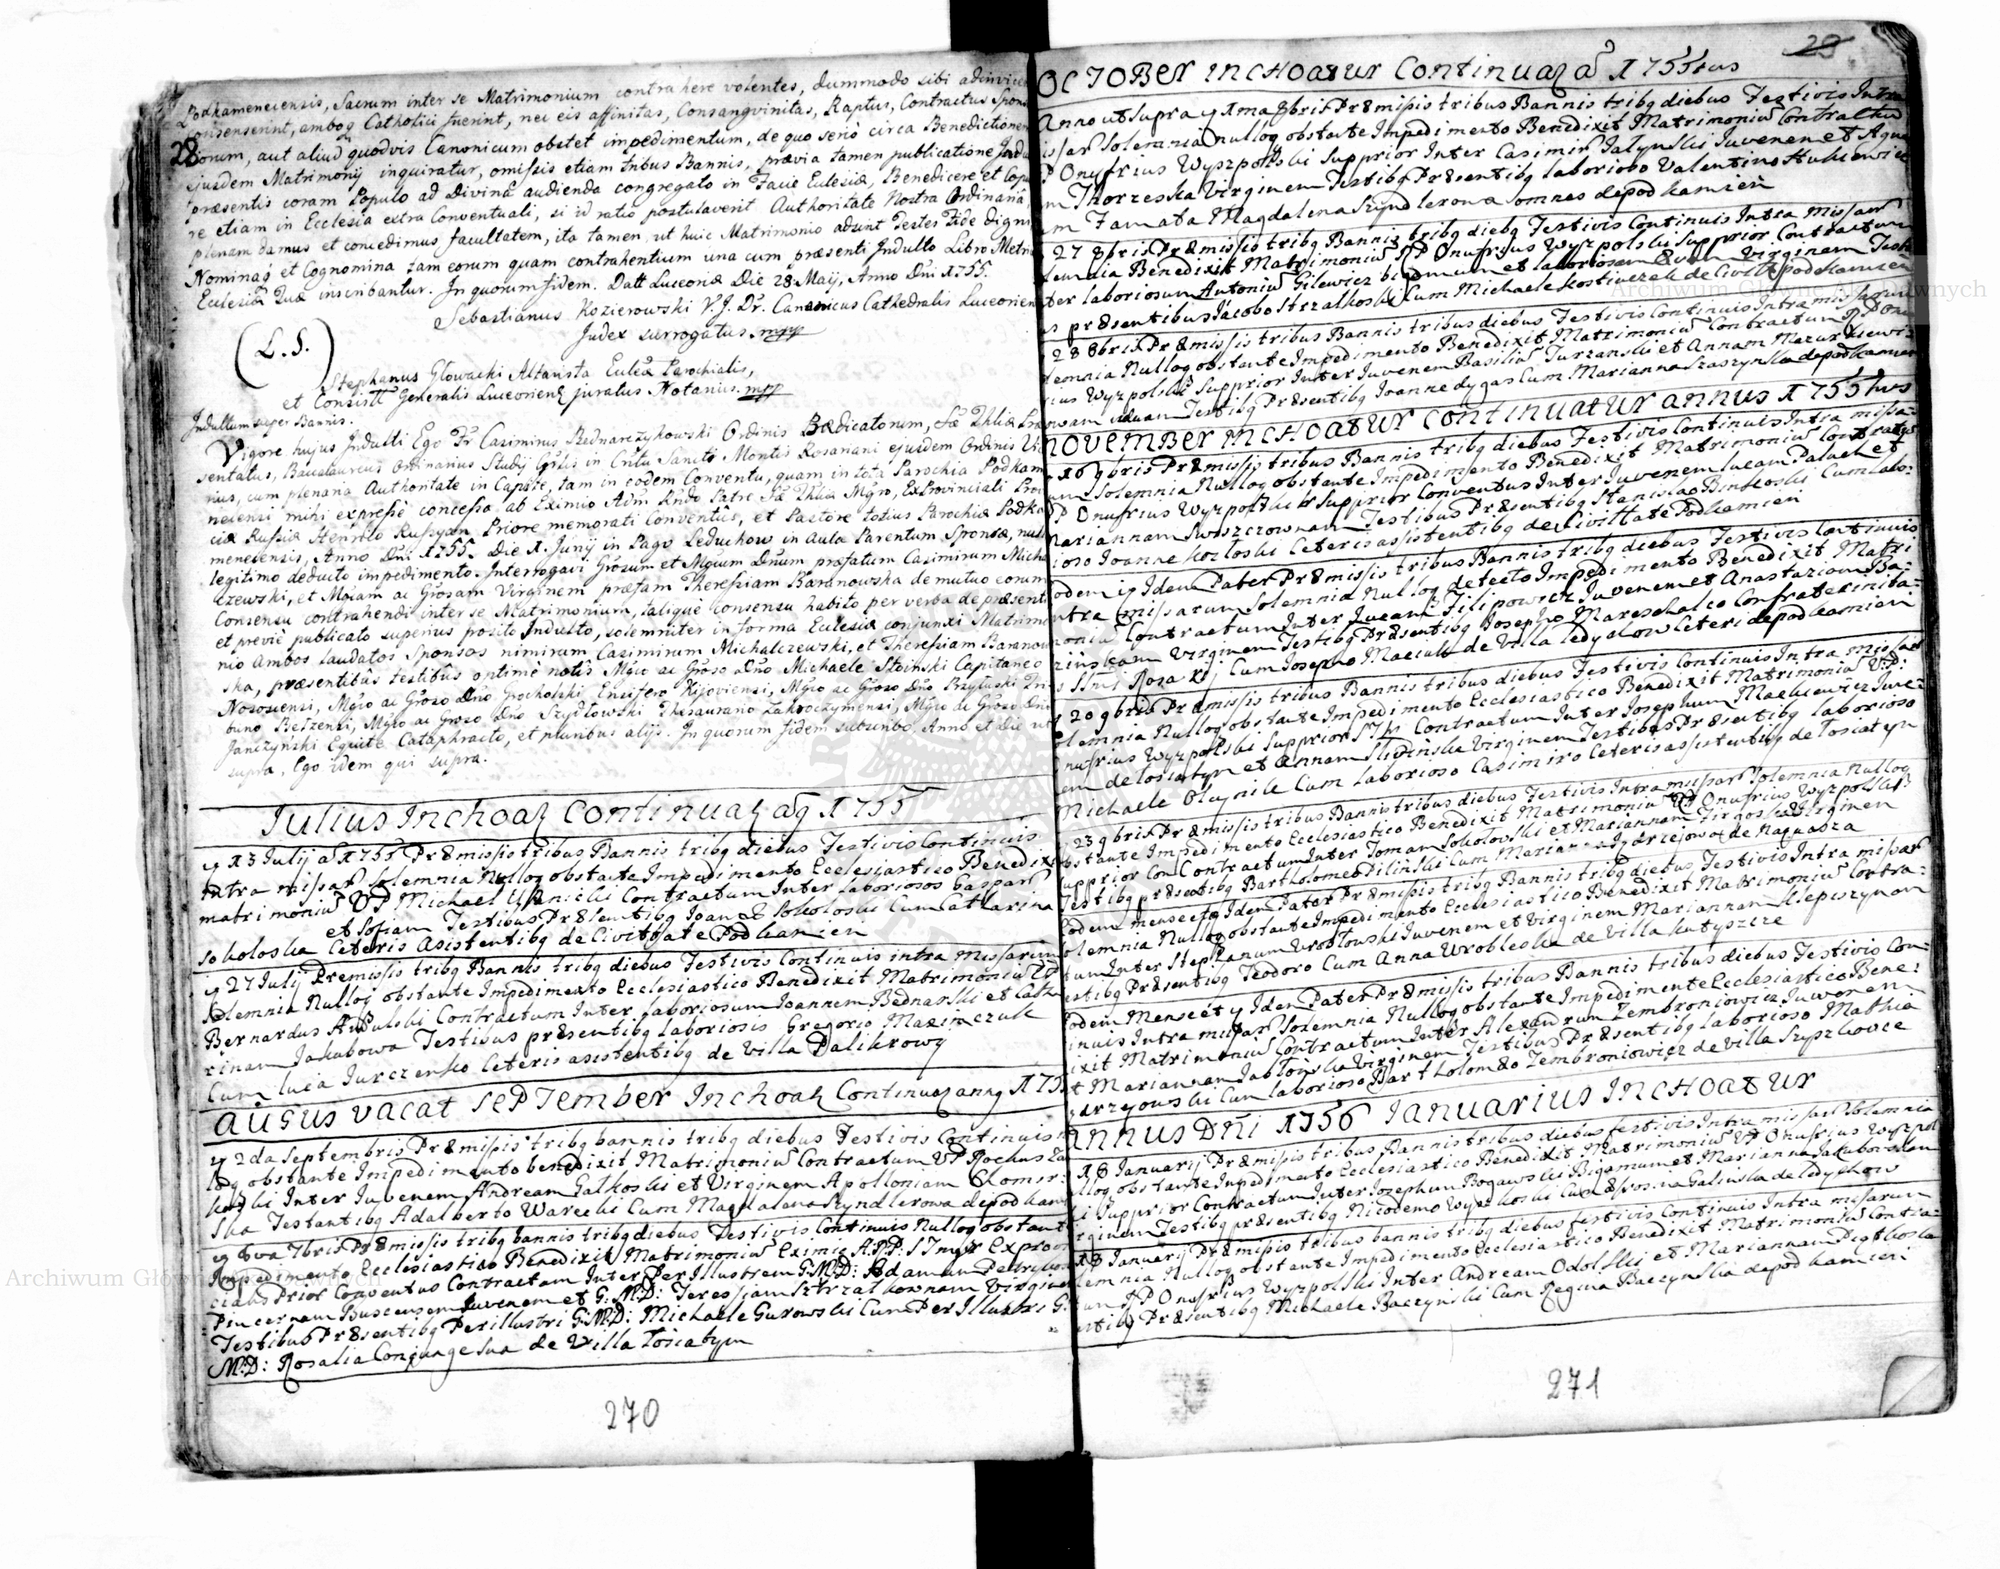 28
Podkamenecensis, Sacrum inter se Matrimonium contrahere volentes, dummodo sibi adinvicem
consenserint, ambog Catholici fuerint, nec eis affinitas, Consangvinitas, Raptus, Contractus Spon
iorum, aut aliud quodvis Canonicum obstet impedimentum, de quo serio circa Benedictionem
ejusdem Matrimonij inquiratur, omissis etiam tribus Bannis, prævia tamen publicatione Indul
præsentis coram Populo ad Divina audienda congregato in Facie Eulesiæ, Benedicere et copu
re etiam in Ecclesia extra Conventuali, si id ratio postulaverit Authoritate Nostra Ordinaria,
plenam damus et concedimus facultatem, ita tamen, ut huic Matrimonio adsint Testes Fide digni
Nominaq et Cognomina tam eorum quam contrahentium una cum præsenti Indulto Libro Metri
Eulesiæ Tuæ inscribantur. In quorum fidem. Datt Luceoriæ Die 28 Maij, Anno Dni 1755.
Sebastianus Kozierowski V. J. Dr. Canonicus Cathedralis Luceorien
Judex surrogatus. mpp
(L. S.)
Stephanus Glowacki Altarista Eulæ Parochialis,
et Consistt Generalis Luceoriens juratus Notarius. mpp
Indultum super Bannis.
Vigore hujus Indulti Ego Fr Casimirus Bednarczykowski Ordinis Prædicatorum, Sæ Thliæ Præ
sentatus, Baccalaureus Ordinarius Studij Gnlis in Cntu Sancti Montis Rosariani ejusdem Ordinis Vic
rius, cum plenaria Authoritate in Capite, tam in eodem Conventu, quam in tota Parochia Podkam
necensi mihi expresse concessa ab Eximio Adm Rndo Patre Sæ Thliæ Mgro, ExProvinciali Prov
ciæ Russiæ Henrico Russyan Priore memorati Conventus, et Pastore totius Parochiæ Podka
menecensis, Anno Dni 1755. Die 1. Junij in Pago Leduchow in Aula Parentum Sponsæ, nullo
legitimo detecto impedimento. Interrogavi Grosum et Mgcum Dnum præfatum Casimirum Micha
czewski, et Mgcam ac Grosam Virginem præfam Theressiam Baranowska de mutuo eorum
Consensu contrahendi inter se Matrimonium, talique consensu habito per verba de præsenti
et previe publicato superius posito Indulto, solemniter in forma Eulesiæ conjunxi Matrimo
nio Ambos laudatos Sponsos nimirum Casimirum Michalczewski, et Theressiam Baranow
ska, præsentibus testibus optime notis Mgco ac Groso Dno Michaele Stoinski Capitaneo
Nososiensi, Mgco ac Groso Dno Grocholski Ensifero Kijoviensi, Mgco ac Groso Dno Przyłuski Tri
buno Betzensi, Mgco ac Groso Dno Szydłowski Thesaurario Zakroczymensi, Mgco ac Groso Dno
Janczyński Equite Cataphracto, et pluribus alijs. In quorum fidem subscribo. Anno et Die ut
supra, Ego idem qui supra.
Julius Inchoaz Continuaz aq 1755
y 13 Julij a 1755 Præmissis tribus Bannis tribq diebus Festivis Continuis
Intra missar Solemnia Nulloq obstante Impedimento Ecclesiastico Benedixit
matrimoniu VP Michael Contractum Inter laboriosos Gaspar
et Sofiam Testibus Præsentibq Joan Sokoloski Cum Catharina
sokoloska Ceteris Asistentibq de Civitate Podkamien
y 27 Julij Premissis tribq Bannis tribq diebus Festivis Continuis intra Missarum
Solemnia Nulloq obstante Impedimento Ecclesiastico Benedixit Matrimoniu VP
Bernardus Contractum Inter laboriosum Joannem Bednarski et Catha
rinam Jakubowa Testibus præsentibq laboriosis Gregorio Maximczuk
Cum lucia Jurczensko Ceteris asistentibq de Villa Dalikrowy
Augus vacat September Inchoaz Continuaz annq 175
y 2da Septembris Præmissis tribq bannis tribq diebus Festivis Continuis
loq obstante Impedimento benedixit Matrimoniu Contractum VP Rochus
koski Inter Juvenem Andream Galkoski et Virginem Apolloniam Chomir
ska Testantibq Adalberto Warecki Cum Magdalena Szyndlerowa de podkam
y 8va 7bris Præmissis tribq bannis tribq diebus Festivis Continuis Nulloq obstant
Impedimento Ecclesiastico Benedixit Matrimoniu Eximiq A:P:P: S T mgr Exprovin
cialis Prior Conventus Contractam Inter Per Illustrem G:M:D: Adamum
Pincernam Buscensem Juvenem et G:M:D: Teressiam Strzalkownam Virginem
Testibus Præsentibq Perillustri G:M:D: Michaele Gurowski Cum Per Illustri G:
M:D: Rosalia Conjuage sua de Villa Łosiatyn
270
29
OCTOBER INCHOATUR Continuaz a 1755tus
Anno ut supra y 1ma 8bris Præmissis tribus Bannis tribq diebus Festivis Intra
issar Solemnia nulloq obstante Impedimento Benedixit Matrimoniu Contractu
P Onufrius Wyszpolski Supprior Inter Casimir Juvenem et Agne
m Thorzeska Virginem Testibq Præsentibq laborioso Valentino
um Famata Magdalena Szyndlerowa omnes de podkamien
27 8bris Præmissis tribq Bannis tribq diebq Festivis Continuis Intra Missar
lemnia Benedixit Matrimoniu VP Onufrius Wyszpolski Supprior Contractum
ter laboriosum Antoniu Gilewicz et laboriosam Virginem
us præsentibus Jacobo Strzalkoski Cum Michaele Kostiuczek de Civitte podkamien
28 8bris Præmissis tribus Bannis tribus diebus Festivis Continuis Intra missarum
lemnia Nulloq obstante Impedimento Benedixit Matrimoniu Contractum VP Onu
rius Wyszpolski Supprior Inter Juvenem Basiliu Turzanski et Annam Mazurkiewi
Testibq Præsentibq Joanne dygas Cum Marianna Staszynska de podkamien
NOVEMBER INCHOATUR CONTINUATUR ANNUS 1755tus
16 9bris Præmissis tribus Bannis tribq diebus Festivis Continuis Intra missa=
um Solemnia Nulloq obstante Impedimento Benedixit Matrimoniu Contractu
P Onufrius Wyszpolski Supprior Conventus Inter Juvenem lucam Paluch et
Mariannam Testibus Præsentibq Stanislao Binkoski Cum labo=
ioso Joanne Kozloski Ceteris assistentibq de Civittate Podkamien
odem y Idem Pater Præmissis tribus Bannis tribq diebus Festivis Continuis
ntra missarum Solemnia Nulloq detecto Impedimento Benedixit Matri
moniu Contractum Inter Lucam Filipowicz Juvenem et Anastaziam Ba=
Virginem Testibq Præsentibq Josepho Mareschalco Confraternita=
s SSmi Rosarij Cum Josepho Maciuk de Villa ledychow Ceteri de podkamien
20 9bris Præmissis tribus Bannis tribus diebus Festivis Continuis Intra missar
olemnia Nulloq obstante Impedimento Ecclesiastico Benedixit Matrimoniu V:P:
nufrius Wyszpolski Supprior Contractum Inter Josephum Mackiewicz Juve=
em de Losiatyn et Annam Slivinska Virginem Testibq Præsentibq laborioso
Michaele Oleynik Cum laborioso Casimiro Ceteris assistentibq de Łosiatyn
23 9bris Præmissis tribus Bannis tribus diebus Festivis Intra missar Solemnia Nulloq
bstante Impedimento Ecclesiastico Benedixit Matrimoniu VP Onufrius Wyszpolski
upprior Con Contractum Inter Toman Sokolowski et Mariannam Virginem
Testibq præsentibq Bartholomeo Pilinski Cum Marianna Jędrzejowa de Naquasza
Eodem mense et y Idem Pater Præmissis tribq Bannis tribq diebus Festivis Intra missar
olemnia Nulloq obstante Impedimento Ecclesiastico Benedixit Matrimoniu Contra=
tum Inter Stephanum Wroblowski Juvenem et Virginem Mariannam Slepiszynam
estibq Præsentibq Teodoro Cum Anna Wrobleska de Villa Kutyszcze
odem Mense et y Idem Pater Præmissis tribus Bannis tribus diebus Festivis Con=
inuis Intra missar Solemnia Nulloq obstante Impedimente Ecclesiastico Bene=
ixit Matrimoniu Contractum Inter Alexandrum Zembroniowicz Juvenem
t Mariannam Jablonska Virginem Testibus Præsentibq laborioso Mathia
arzyowski Cum laborioso Bartholomæo Zembroniowicz de Villa Szyszkowce
ANNUS Dni 1756 IANUARIUS INCHOATUR
18 Januarij Præmissis tribus Bannis tribus diebus festivis Intra missar Solemnia
lloq obstante Impedimento Ecclesiastico Benedixit Matrimoniu VP Onufrius Wyszpol
i Supprior Contractum Inter Josephum Bogawski Bigamum et Marianna Jakubowskam
irginem Testibq præsentibq Nicodemo Cum Galinska de Ledychow
18 Januarij Præmissis tribus bannis tribq diebus festivis Continuis Intra missarum
lemnia Nulloq obstante Impedimento Ecclesiastico Benedixit Matrimoniu Contra=
tum VP Onufrius Wyszpolski Inter Andream Odolski et Mariannam
estibq Præsentibq Michaele Baczynski Cum Regina Baczynska de podkamien
271
Archiwum Główne Akt Dawnych
Archiwum Główne Akt Dawnych